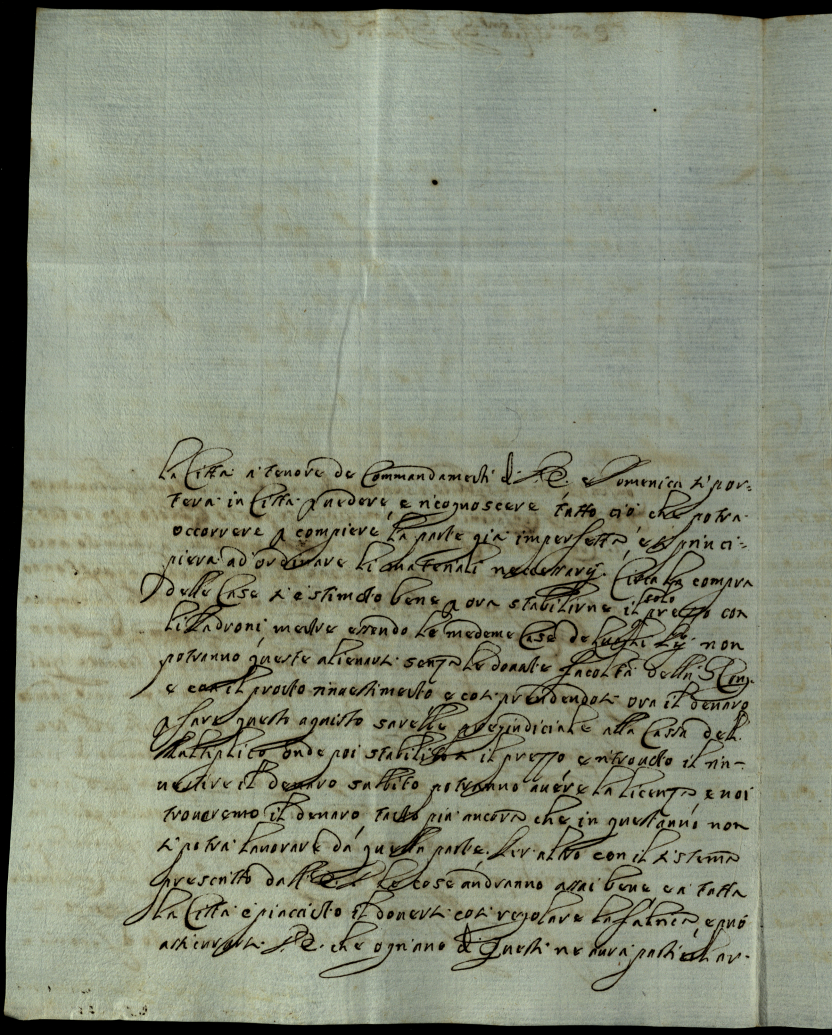 la Città a tenore de Commandamenti di V.E. e Domenica si por-
terà in Città p vedere e ricognoscere tutto ciò che potrà
occorrere p compiere la parte già imperfetta e si princi-
pierà ad ordinare li materiali necessarij. Circa la compra
delle Case si è stimato bene p ora stabilirne il solo prezzo con
li Padroni mentre essendo le medeme Case de non
potranno queste alienarsi senza le donate facoltà della S. Cong.
e con il pronto rinvestimento e così prendendosi ora il denaro
p fare questo aquisto sarebbe pregiudiciale alla Cassa del
Maltiplico onde poi stabilito il prezzo e ritrovato il rin-
vestire il denaro subbito potranno avere la licenza e noi
trovaremo il denaro tanto più ancora che in quest'anno non
si potrà lavorare da quella parte. Per altro con il sistema
prescritto dall' E.V. le cose andranno assai bene e a tutta
la Città è piaciuto il doversi così regolare la fabrica, e può
assicurarsi V.E. che ogn'uno di Questi ne avrà particolar-